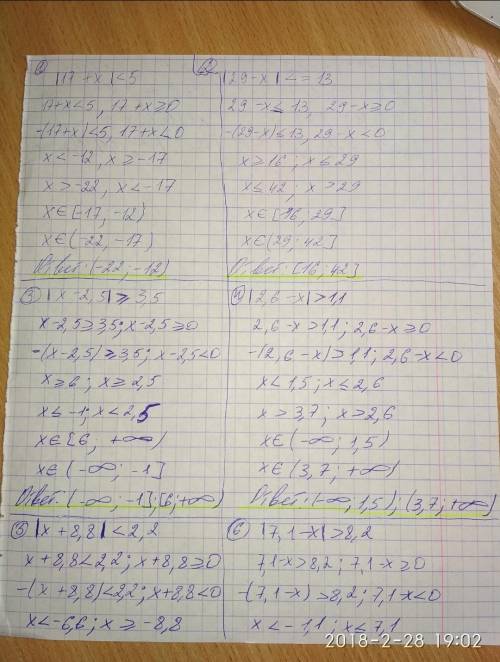 ① |17+x|<5
17+x<5, 17+x≥0
-(17+x)<5, 17+x<0
x<-12, x≥-17
x>-22, x<-17
x∈[-17;-12)
x∈(-22,-17)
Ответ: (-22;-12)
② |29-x|<=13
29-x≤13, 29-x≥0
-(29-x)≤13, 29-x<0
x≥16; x≤29
x≤42; x>29
x∈[16; 29]
x∈(29; 42]
Ответ: [16; 42]
③ |x-2,5|≥3,5
x-2,5≥3,5; x-2,5≥0
-(x-2,5)≥3,5; x-2,5<0
x≥6; x≥2,5
x≤-1; x<2,5
x∈[6; +∞)
x∈(-∞; -1]
Ответ: (-∞; -1];[6;+∞)
④ |2,6-x|>1,1
2,6-x>1,1; 2,6-x≥0
-(2,6-x)>1,1; 2,6-x<0
x<1,5; x≤2,6
x>3,7; x>2,6
x∈(-∞; 1,5)
x∈(3,7; +∞)
Ответ: (-∞; 1,5); (3,7; +∞)
⑤ |x+8,8|<2,2
x+8,8<2,2; x+8,8≥0
-(x+8,8)<2,2; x+8,8<0
x<-6,6; x≥-8,8
⑥ |7,1-x|>8,2
7,1-x>8,2; 7,1-x≥0
-(7,1-x)>8,2; 7,1-x<0
x<-1,1; x≤7,1
2018-2-28 19:02